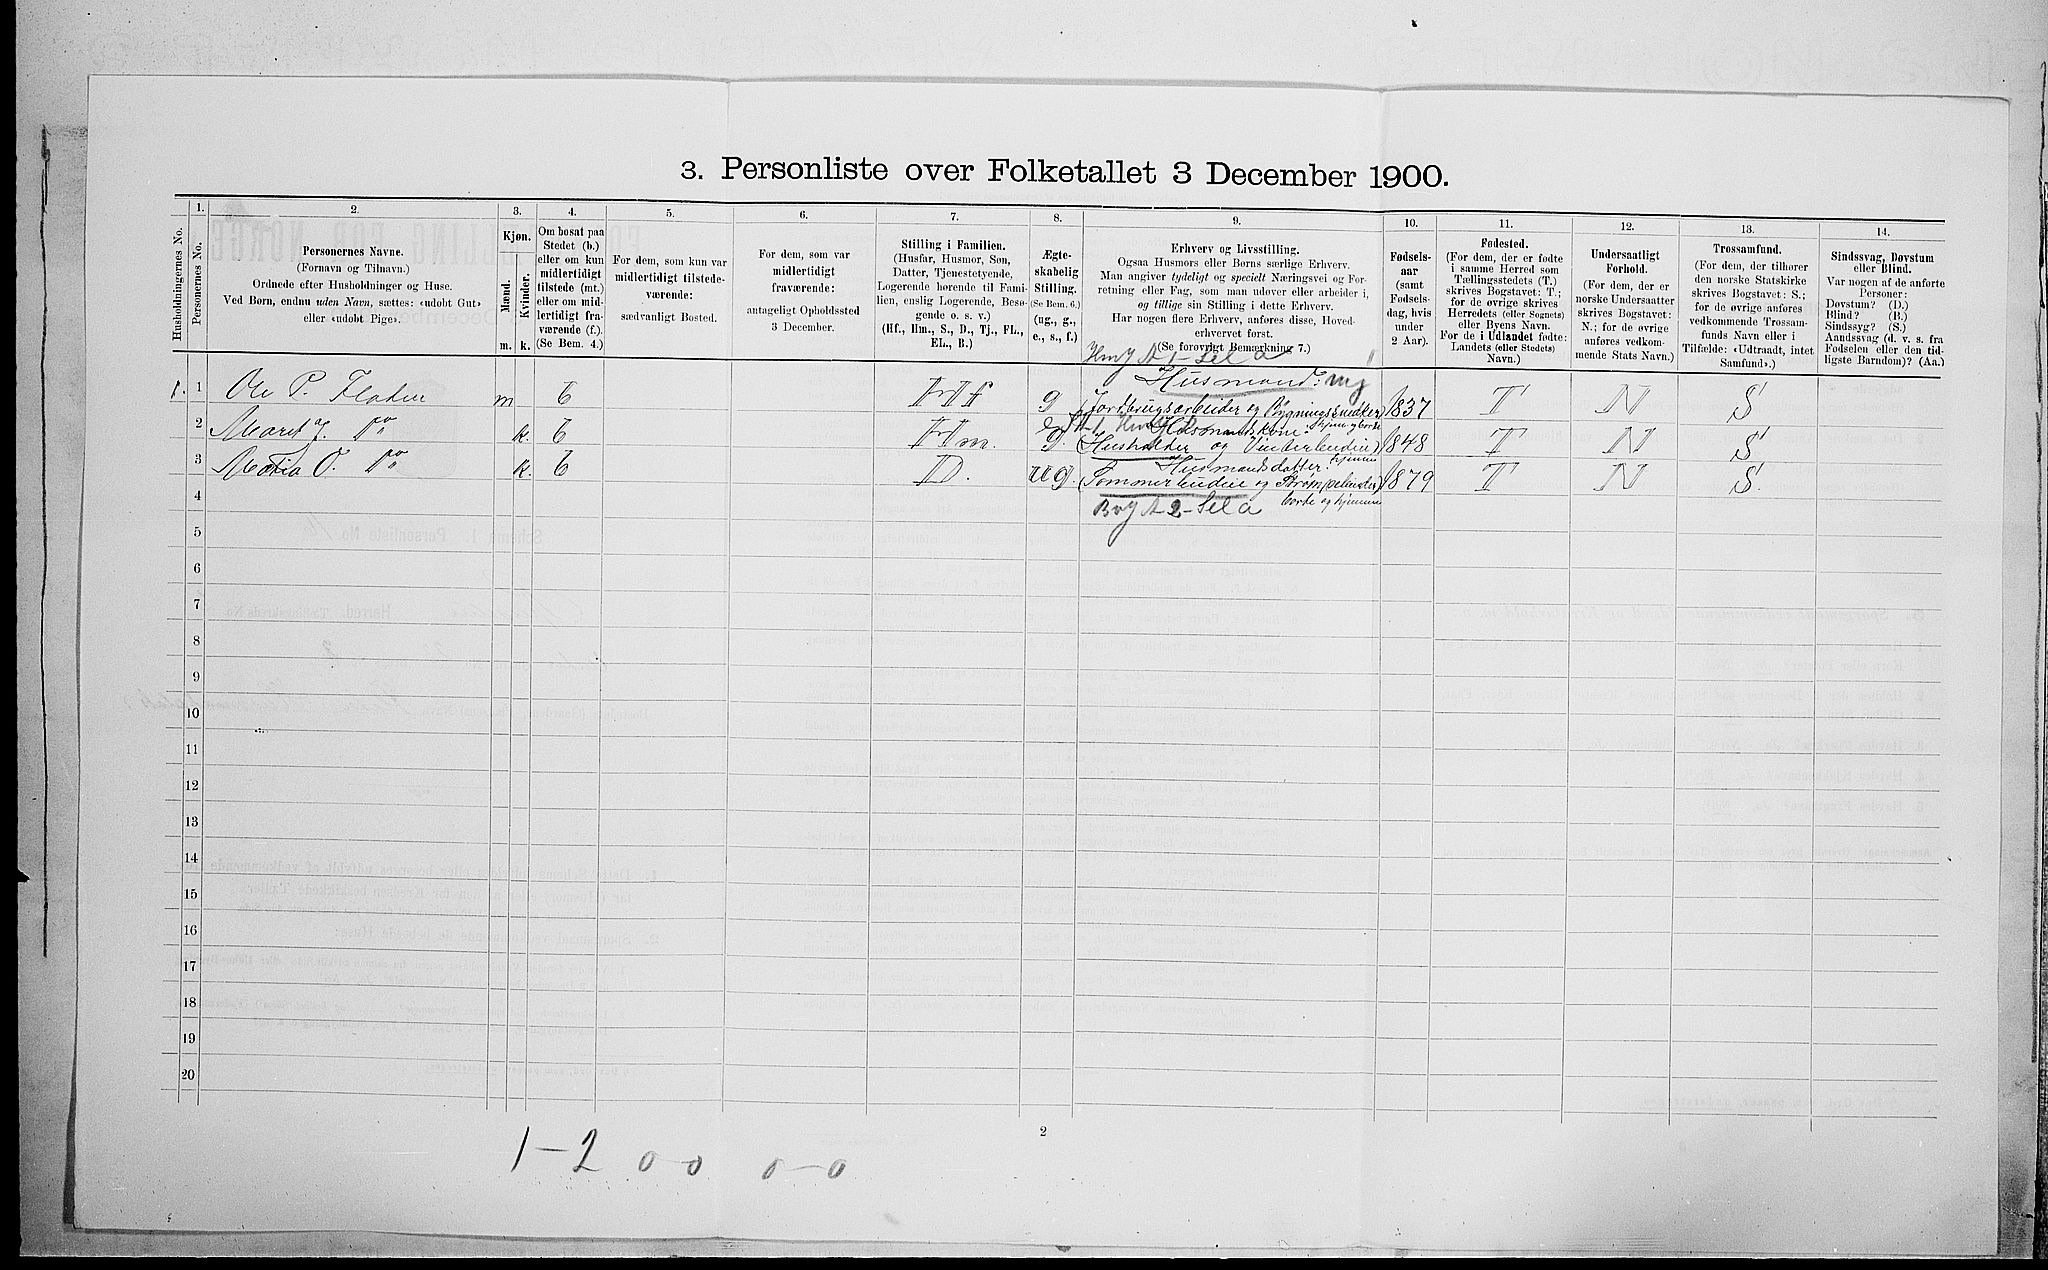 3. Personliste over Folketallet 3 December 1900.
1. 2. 3. 4. 5. 6. 7. 8. 9. 10. 11. 12. 13. 14.
Husholdningernes No.
Personernes No.
Personernes Navne.
(Fornavn og Tilnavn.)
Ordnede efter Husholdninger og Huse.
Ved Børn, endnu uden Navn, sættes: «udøbt Gut»
eller «udøbt Pige».
Kjøn.
Mænd.
Kvinder.
m. k.
Om bosat paa
Stedet (b.)
eller om kun
midlertidigt
tilstede (mt.)
eller om mid-
lertidigt fra-
værende (f.)
(Se Bem. 4.)
For dem, som kun var
midlertidigt tilstede-
værende:
sædvanligt Bosted.
For dem, som var
midlertidigt
fraværende:
antageligt Opholdssted
3 December.
Stilling i Familien.
(Husfar, Husmor, Søn,
Datter, Tjenestetyende,
Logerende hørende til Fami-
lien, enslig Logerende, Besø-
gende o. s. v.)
(Hf., Hm., S., D., Tj., FL.,
EL., B.)
Ægte-
skabelig
Stilling.
(Se Bem. 6.)
(ug., g.,
e., s., f.)
Erhverv og Livsstilling.
Ogsaa Husmors eller Børns særlige Erhverv.
Man angiver tydeligt og specielt Næringsvei og For-
retning eller Fag, som man udøver eller arbeider i,
og tillige sin Stilling i dette Erhverv.
Har nogen flere Erhverv, anføres disse, Hoved-
erhvervet først.
(Se forøvrigt Bemerkning 7.)
Fødsels-
aar
(samt
Fødsels-
dag, hvis
under
2 Aar).
Fødested.
(For dem, der er fødte
i samme Herred som
Tællingsstedets (T.)
skrives Bogstavet: T.;
for de øvrige skrives
Herredets (eller Sognets)
eller Byens Navn.
For de i Udlandet fødte:
Landets (eller Stedets)
Navn.)
Undersaatligt
Forhold.
(For dem, der er
norske Undersaatter
skrives Bogstavet:
N.; for de øvrige
anføres vedkom-
mende Stats Navn.)
Trossamfund.
(For dem, der tilhører
den norske Statskirke
skrives Bogstavet: S.;
for de øvrige anføres
vedkommende Trossam-
funds Navn eller i
Tilfælde: «Udtraadt, intet
Samfund».)
Sindssvag, Døvstum
eller Blind.
Var nogen af de anførte
Personer:
Døvstum? (D.)
Blind? (B.)
Sindssyg? (S.)
Aandssvag (d. v. s. fra
Fødselen eller den tid-
ligste Barndom)? (Aa.)
Husmand:
1. 1 Ole P. Floden m b Hf g (Jordbrugsarbeider og Bygningssnedker) 1837 T N S
Husmandskone.
2 Maret J. do k. b Hm. g. 1848 T N S
Husmandsdatter.
3 Maria O. do k. b D. ug. 1879 T N S.
4
5
6
7
8
9
10
11
12
13
14
15
16
17
18
19
20
2
1-2 0-0 0-0